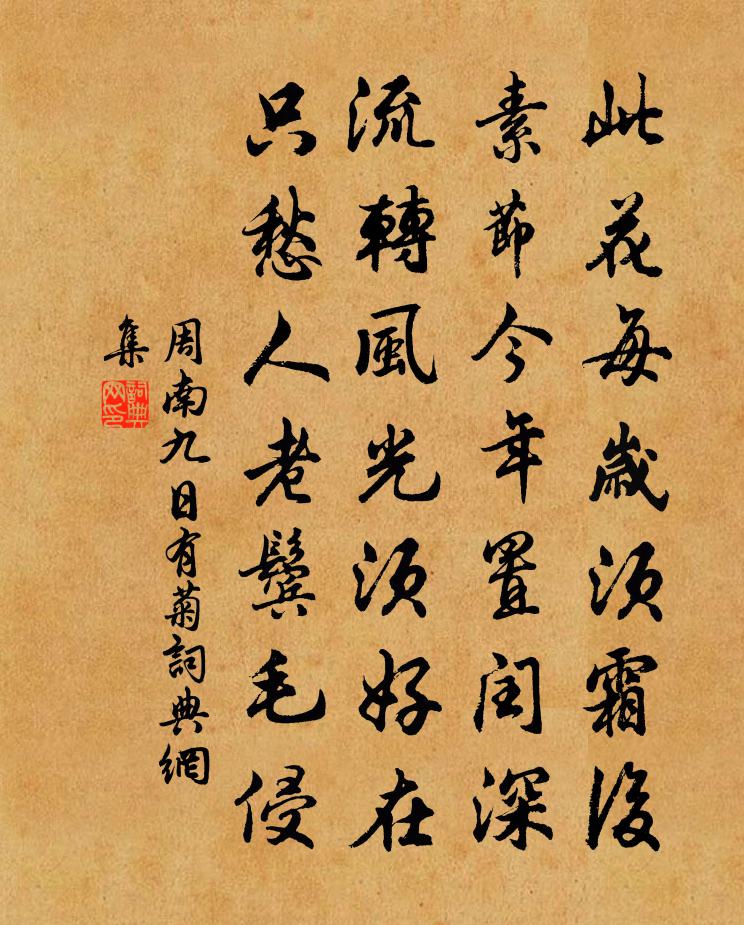 此花每歲須霜後
素節今年置閏深
流轉風光須好在
只愁人老鬢毛侵
周南九日有菊詞典網
集
詞典
网印